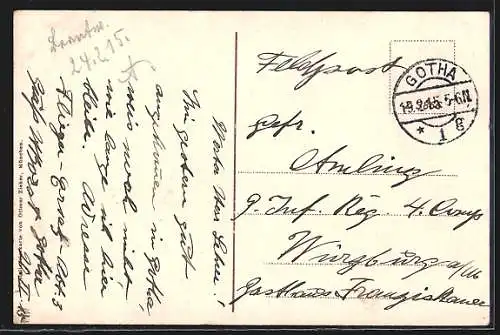 Beantw.
24.2.15.
Werter Herr Lehrer!
Bin gestern gut
angekommen in Gotha
weis noch nicht
wie lange ich hier
bleibe. Adresse
Flieger-Ersatz-Abt. 3
Gotha
Ottmar Zieher, München.
Feldpost
GOTHA
19.2.15.5-6N.
* 1 g
Gefr.
Amling
9. Inf. Reg. 4. Comp
Würzburg a/M
Gasthaus Franziskaner